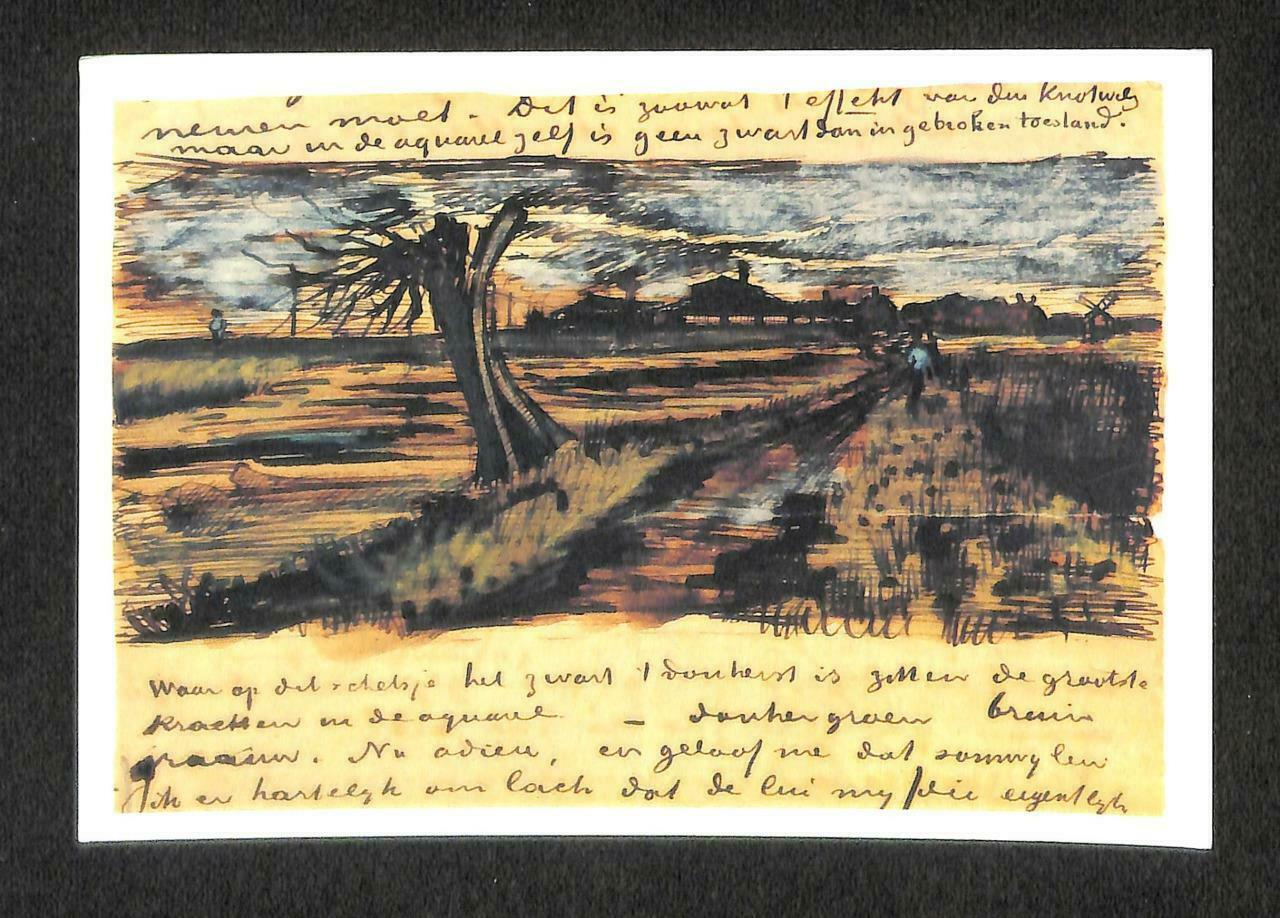 nemen moet. Dit is zoowat 't effekt van den Knotwilg
maar in de aquarel zelf is geen zwart dan in gebroken toestand.
Waar op dit schetsje het zwart 't donkerst is zitten de grootste
krachten in de aquarel – donkergroen bruin
graauw. Nu adieu, en geloof me dat somwylen
ik er hartelyk om lach dat de lui my die eigentlyk